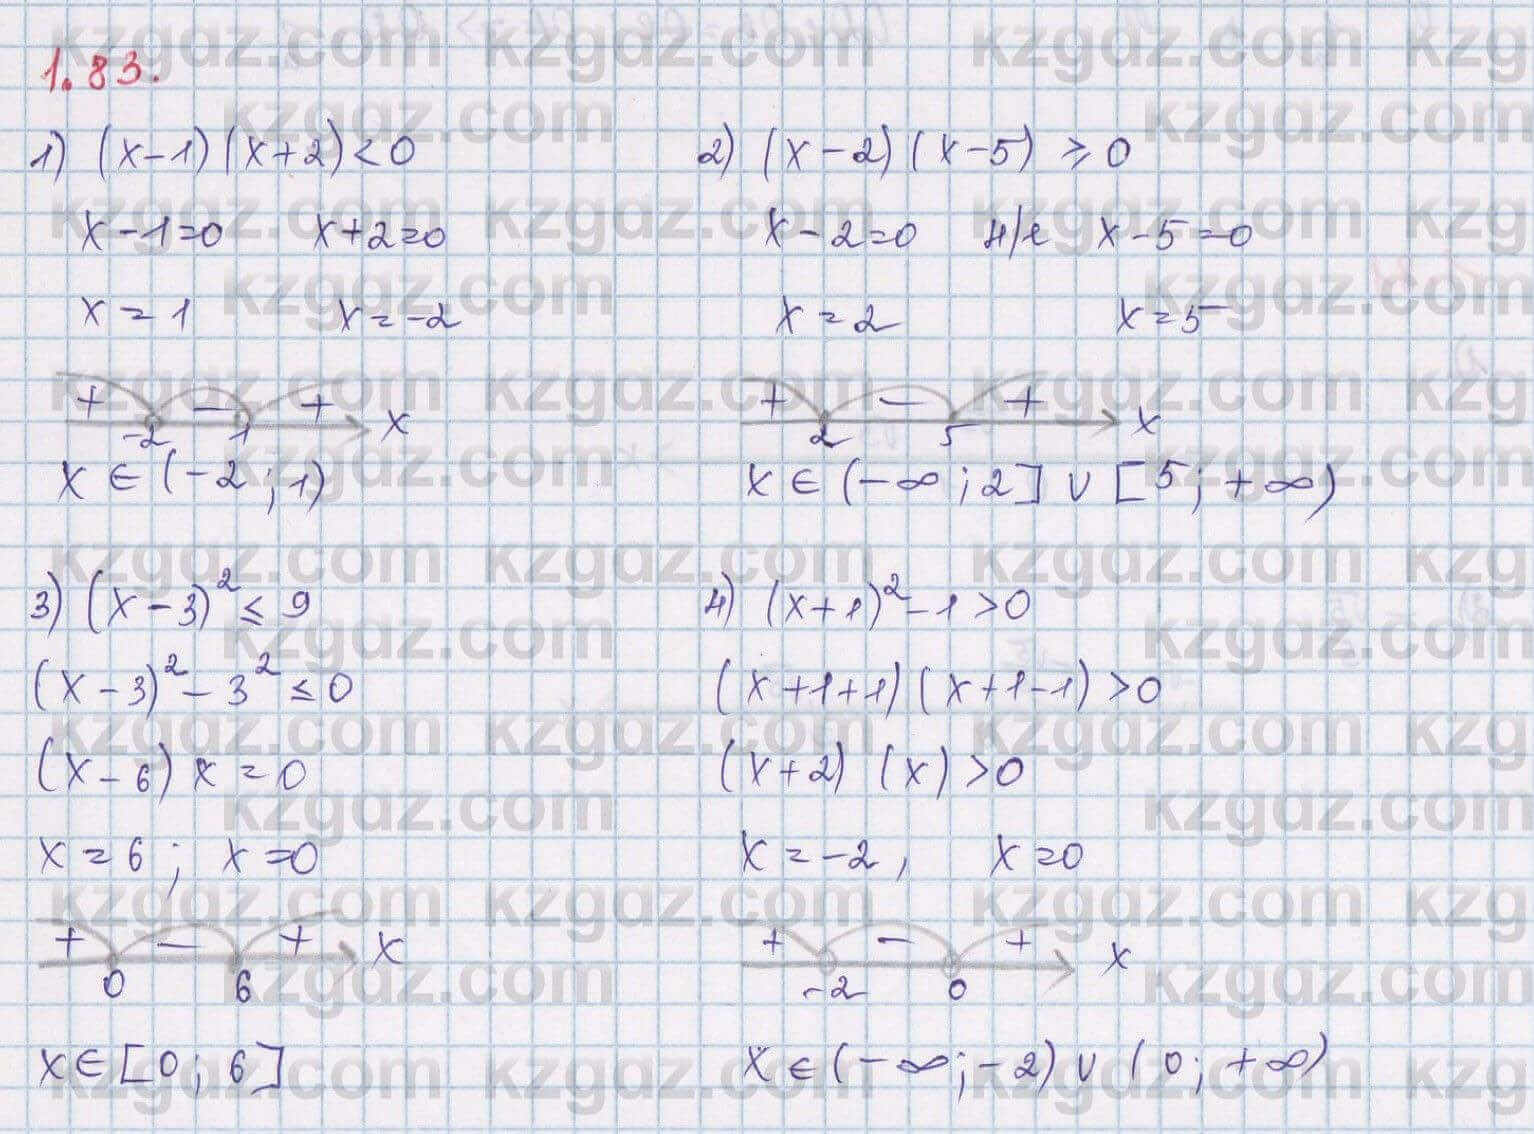 1.83.
1) (x-1)(x+2)<0
x-1=0 x+2=0
x=1 x=-2
+ - + x
-2 1
x ∈ (-2; 1)
2) (x-2)(x-5) ⩾ 0
x-2=0 н/е x-5=0
x=2 x=5
+ - + x
2 5
x ∈ (-∞; 2] ∪ [5; +∞)
3) (x-3)² ≤ 9
(x-3)² - 3² ≤ 0
(x-6) x = 0
x=6; x=0
+ - + x
0 6
x ∈ [0; 6]
4) (x+1)² - 1 > 0
(x+1+1)(x+1-1) > 0
(x+2) (x) > 0
x=-2, x=0
+ - + x
-2 0
x ∈ (-∞; -2) ∪ (0; +∞)
kzgdz.com